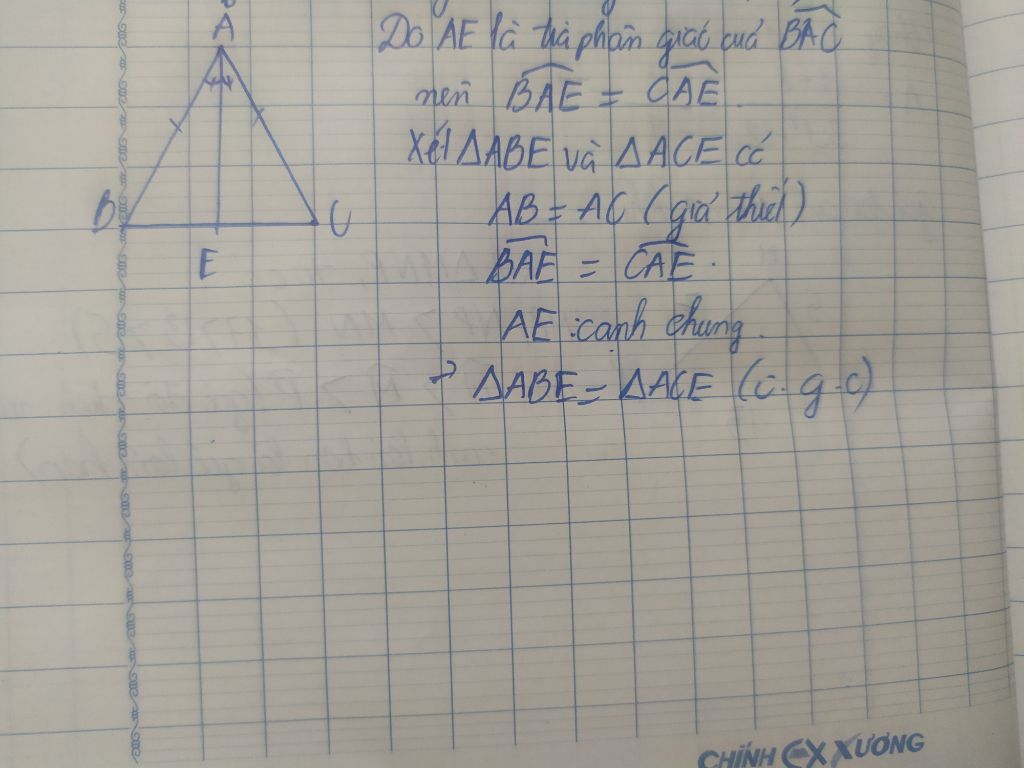 A
Do AE là tia phân giác của BAC
nên BAE = CAE.
Xét △ABE và △ACE có
AB = AC (giả thiết)
B
C
BAE = CAE.
E
AE : cạnh chung.
→ △ABE = △ACE (c.g.c)
CHÍNH XƯƠNG